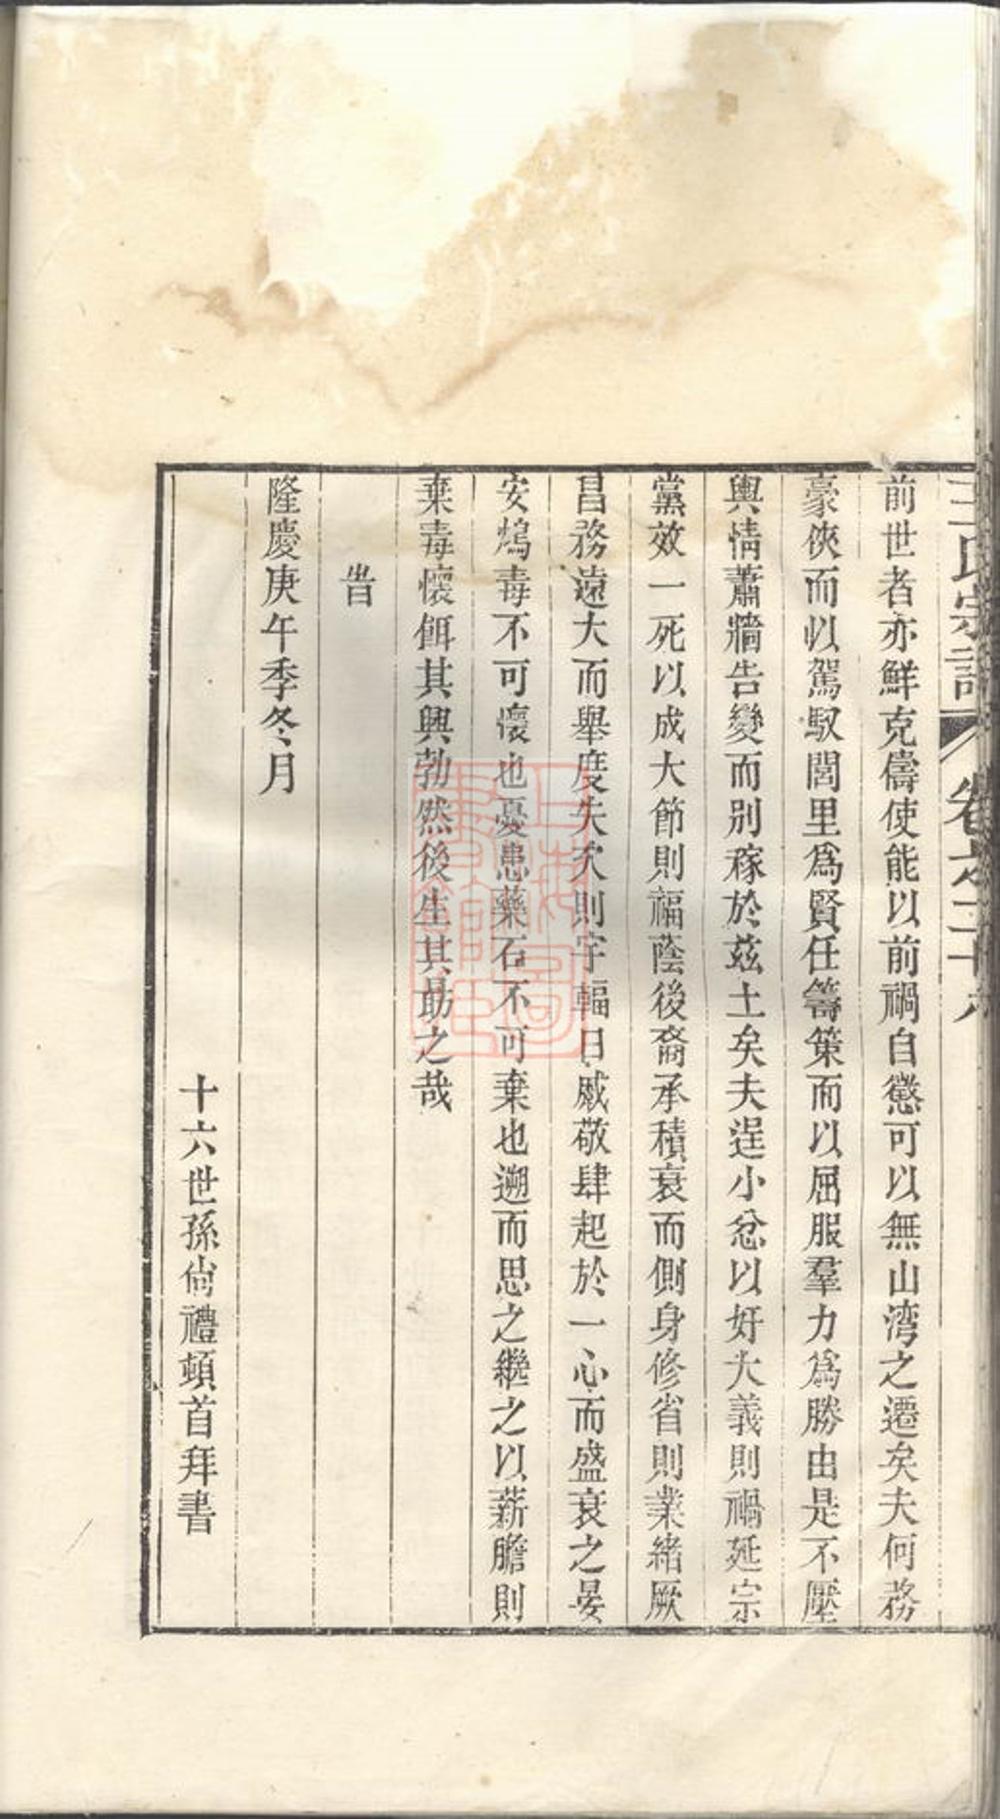 王氏宗譜 卷之三十六
前世者亦鮮克儔使能以前禍自懲可以無山湾之遷矣夫何務
豪俠而以駕馭閭里為賢任籌策而以屈服羣力為勝由是不壓
輿情蕭牆告變而別稼於茲土矣夫逞小忿以奸大義則禍延宗
黨效一死以成大節則福蔭後裔承積衰而側身修省則業緒厥
昌務遠大而舉度失次則宇輻日戚敬肆起於一心而盛衰之晏
安鴆毒不可懷也憂患藥石不可棄也遡而思之繼之以薪膽則
棄毒懷餌其興勃然後生其勗之哉
旹
隆慶庚午季冬月
十六世孫尙禮頓首拜書